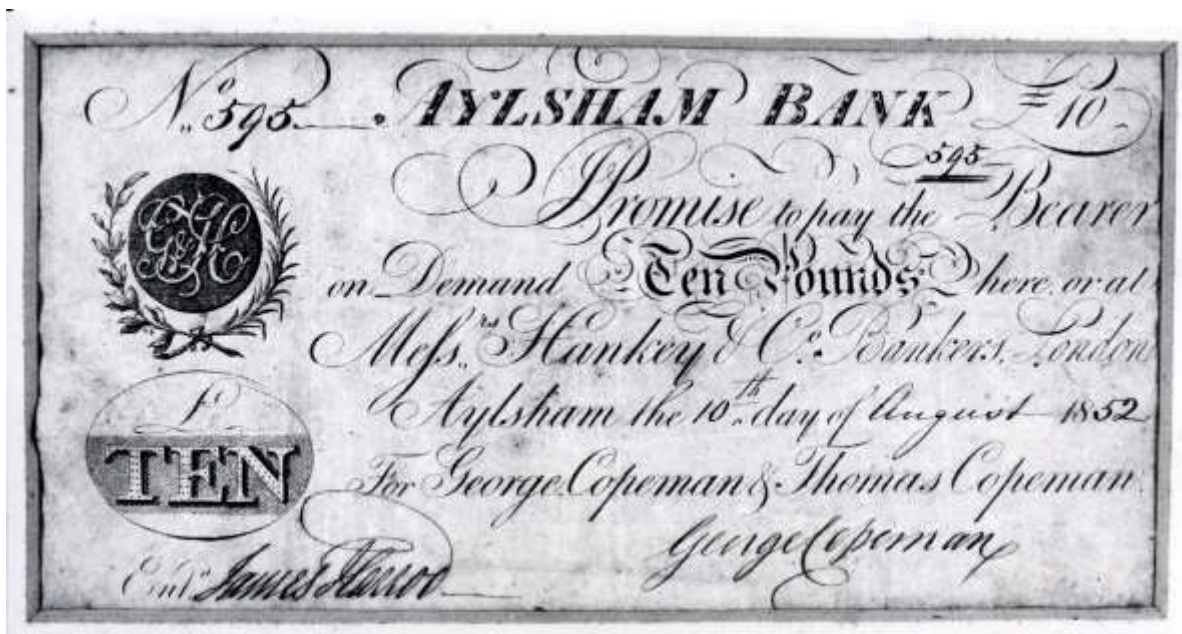 No 595 AYLSHAM BANK £10
595
I Promise to pay the Bearer
on Demand Ten Pounds here, or at
Messrs. Hankey & Co. Bankers, London
Aylsham the 10th day of August 1852
For George Copeman & Thomas Copeman
George Copeman
£
TEN
Entd. James